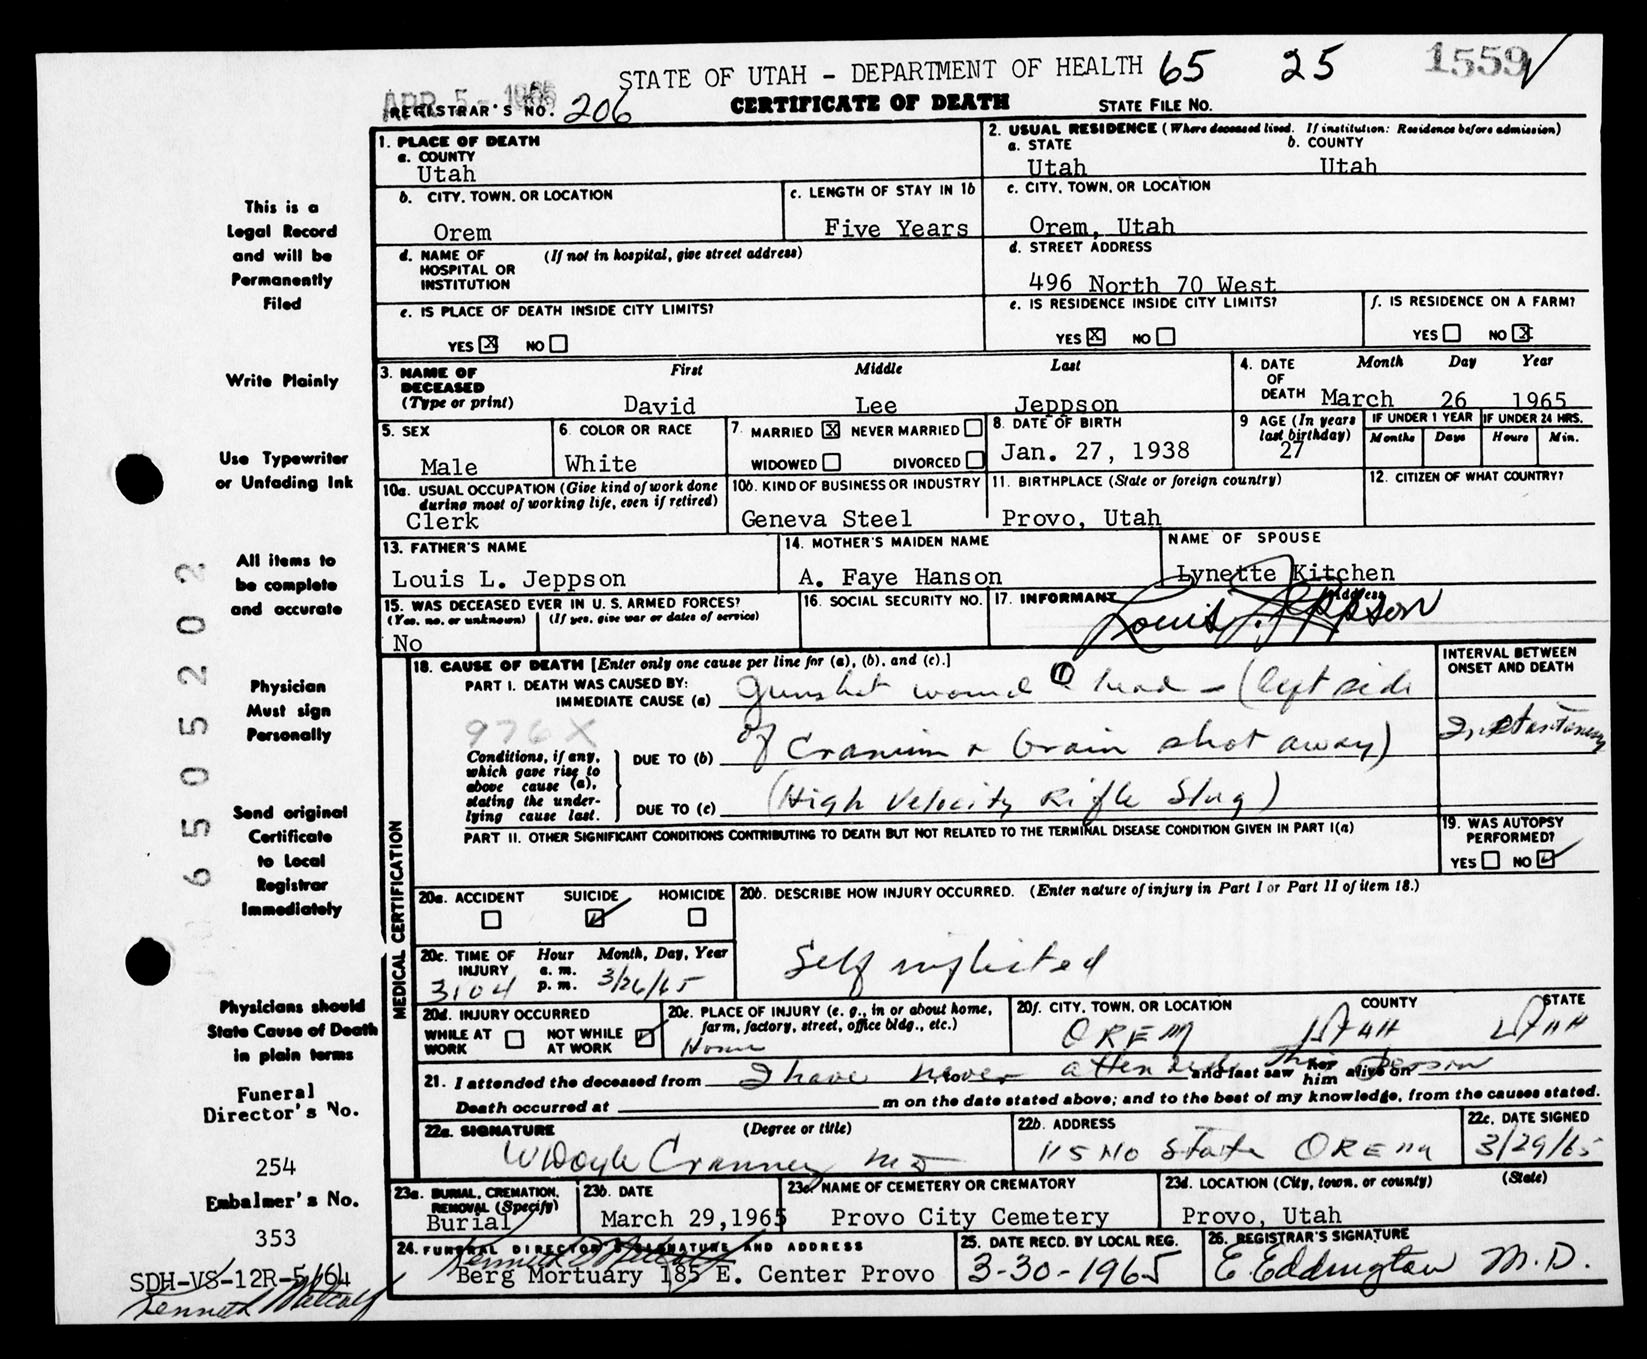 STATE OF UTAH - DEPARTMENT OF HEALTH 65 25 1559
APR 5 - 1965
REGISTRAR'S NO. 206 CERTIFICATE OF DEATH STATE FILE NO.
1. PLACE OF DEATH
a. COUNTY
Utah
2. USUAL RESIDENCE (Where deceased lived. If institution: Residence before admission)
a. STATE b. COUNTY
Utah Utah
b. CITY, TOWN, OR LOCATION
Orem
c. LENGTH OF STAY IN 1b
Five Years
c. CITY, TOWN, OR LOCATION
Orem, Utah
d. NAME OF (If not in hospital, give street address)
HOSPITAL OR
INSTITUTION
d. STREET ADDRESS
496 North 70 West
e. IS PLACE OF DEATH INSIDE CITY LIMITS?
YES X NO
e. IS RESIDENCE INSIDE CITY LIMITS?
YES X NO
f. IS RESIDENCE ON A FARM?
YES NO X
3. NAME OF First Middle Last
DECEASED
(Type or print) David Lee Jeppson
4. DATE Month Day Year
OF
DEATH March 26 1965
5. SEX
Male
6. COLOR OR RACE
White
7. MARRIED X NEVER MARRIED
WIDOWED DIVORCED
8. DATE OF BIRTH
Jan. 27, 1938
9 AGE (In years
last birthday)
27
IF UNDER 1 YEAR IF UNDER 24 HRS.
Months Days Hours Min.
10a. USUAL OCCUPATION (Give kind of work done
during most of working life, even if retired)
Clerk
10b. KIND OF BUSINESS OR INDUSTRY
Geneva Steel
11. BIRTHPLACE (State or foreign country)
Provo, Utah
12. CITIZEN OF WHAT COUNTRY?
13. FATHER'S NAME
Louis L. Jeppson
14. MOTHER'S MAIDEN NAME
A. Faye Hanson
NAME OF SPOUSE
Lynette Kitchen
15. WAS DECEASED EVER IN U. S. ARMED FORCES?
(Yes, no, or unknown) (If yes, give war or dates of service)
No
16. SOCIAL SECURITY NO.
17. INFORMANT Address
Louis L. Jeppson
MEDICAL CERTIFICATION
18. CAUSE OF DEATH [Enter only one cause per line for (a), (b), and (c).]
INTERVAL BETWEEN
ONSET AND DEATH
PART I. DEATH WAS CAUSED BY:
IMMEDIATE CAUSE (a) Gunshot wound head - (left side
976X
Conditions, if any,
which gave rise to
above cause (a),
stating the under-
lying cause last.
DUE TO (b) of Cranium & brain shot away)
DUE TO (c) (High Velocity Rifle Slug)
PART II. OTHER SIGNIFICANT CONDITIONS CONTRIBUTING TO DEATH BUT NOT RELATED TO THE TERMINAL DISEASE CONDITION GIVEN IN PART I(a)
19. WAS AUTOPSY
PERFORMED?
YES NO ✓
20a. ACCIDENT SUICIDE HOMICIDE
✓
20b. DESCRIBE HOW INJURY OCCURRED. (Enter nature of injury in Part I or Part II of item 18.)
Self inflicted
20c. TIME OF Hour Month, Day, Year
INJURY a. m.
3:04 p. m. 3/26/65
20d. INJURY OCCURRED
WHILE AT NOT WHILE
WORK AT WORK ✓
20e. PLACE OF INJURY (e. g., in or about home,
farm, factory, street, office bldg., etc.)
Home
20f. CITY, TOWN, OR LOCATION COUNTY STATE
OREM UTAH UTAH
21. I attended the deceased from I have never attended this person and last saw her him alive on
Death occurred at m on the date stated above; and to the best of my knowledge, from the causes stated.
22a. SIGNATURE (Degree or title)
W Doyle Cranney MD
22b. ADDRESS
115 NO State OREM
22c. DATE SIGNED
3/29/65
23a. BURIAL, CREMATION,
REMOVAL (Specify)
Burial
23b. DATE
March 29,1965
23c. NAME OF CEMETERY OR CREMATORY
Provo City Cemetery
23d. LOCATION (City, town, or county) (State)
Provo, Utah
24. FUNERAL DIRECTOR'S SIGNATURE AND ADDRESS
Berg Mortuary 185 E. Center Provo
25. DATE RECD. BY LOCAL REG.
3-30-1965
26. REGISTRAR'S SIGNATURE
E. Eddington M.D.
This is a
Legal Record
and will be
Permanently
Filed
Write Plainly
Use Typewriter
or Unfading Ink
All items to
be complete
and accurate
Physician
Must sign
Personally
Send original
Certificate
to Local
Registrar
Immediately
Physicians should
State Cause of Death
in plain terms
Funeral
Director's No.
254
Embalmer's No.
353
SDH-VS-12R-5/64
Kenneth Metcalf
650505202